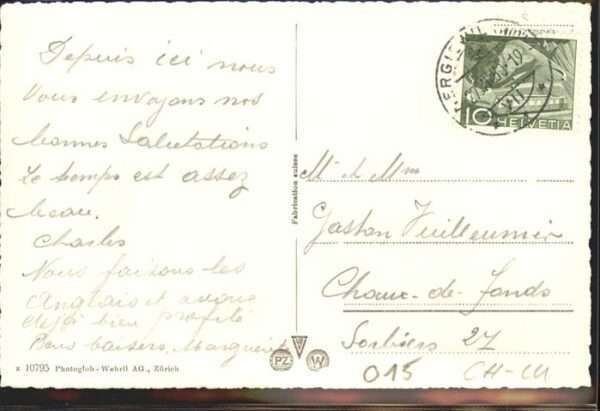 Depuis ici nous
Vous envoyons nos
bonnes Salutations
Le temps est assez
beau.
Charles
Nous faisons les
Anglais et avons
déjà bien profité
Bons baisers, Marguerite
x 10795 Photoglob-Wehrli AG., Zürich
Fabrication suisse
PZ
W
10
HELVETIA
Mr et Mme
Gaston Vuilleumier
Chaux-de-Fonds
Sorbiers 27
015
CH-LU